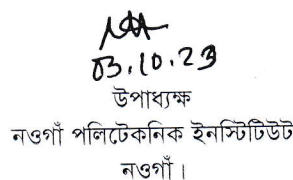 03.10.23
উপাধ্যক্ষ
নওগাঁ পলিটেকনিক ইনস্টিটিউট
নওগাঁ।